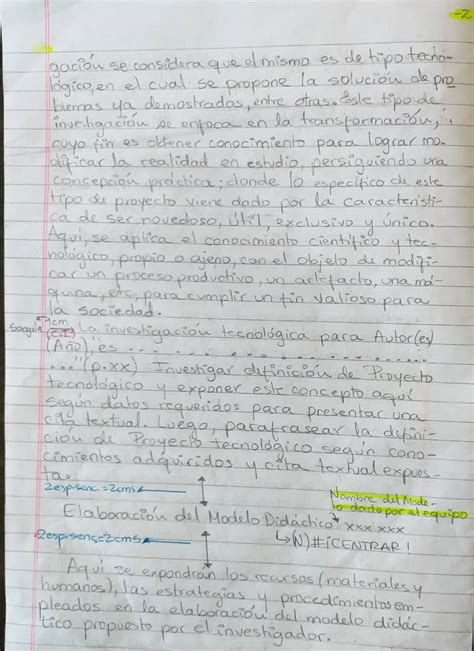 -2
gación se considera que el mismo es de tipo tecno-
lógico, en el cual se propone la solución de pro
blemas ya demostrados, entre otras. Este tipo de
investigación se enfoca en la transformación,
cuyo fin es obtener conocimiento para lograr mo-
dificar la realidad en estudio, persiguiendo una
concepción práctica; donde lo específico de este
tipo de proyecto viene dado por la característi-
ca de ser novedoso, útil, exclusivo y único.
Aquí, se aplica el conocimiento científico y tec-
nológico, propio o ajeno, con el objeto de modifi-
car un proceso productivo, un artefacto, una má-
quina, etc, para cumplir un fin valioso para
la sociedad.
1cm
Sangría La investigación tecnológica para Autor(es)
(Año) "es . . . . . . . . . . . . . . . . . .
..." (p.xx) Investigar definición de Proyecto
tecnológico y exponer este concepto aquí
según datos requeridos para presentar una
cita textual. Luego, parafrasear la defini-
ción de Proyecto tecnológico según cono-
cimientos adquiridos y cita textual expues-
ta.
2esp.senc=2cms
Nombre del Mode-
lo dado por el equipo
Elaboración del Modelo Didáctico: xxx xxx
2esp.senc=2cms
N)#¡CENTRAR!
Aquí se expondrán los recursos (materiales y
humanos), las estrategias y procedimientos em-
pleados en la elaboración del modelo didác-
tico propuesto por el investigador.